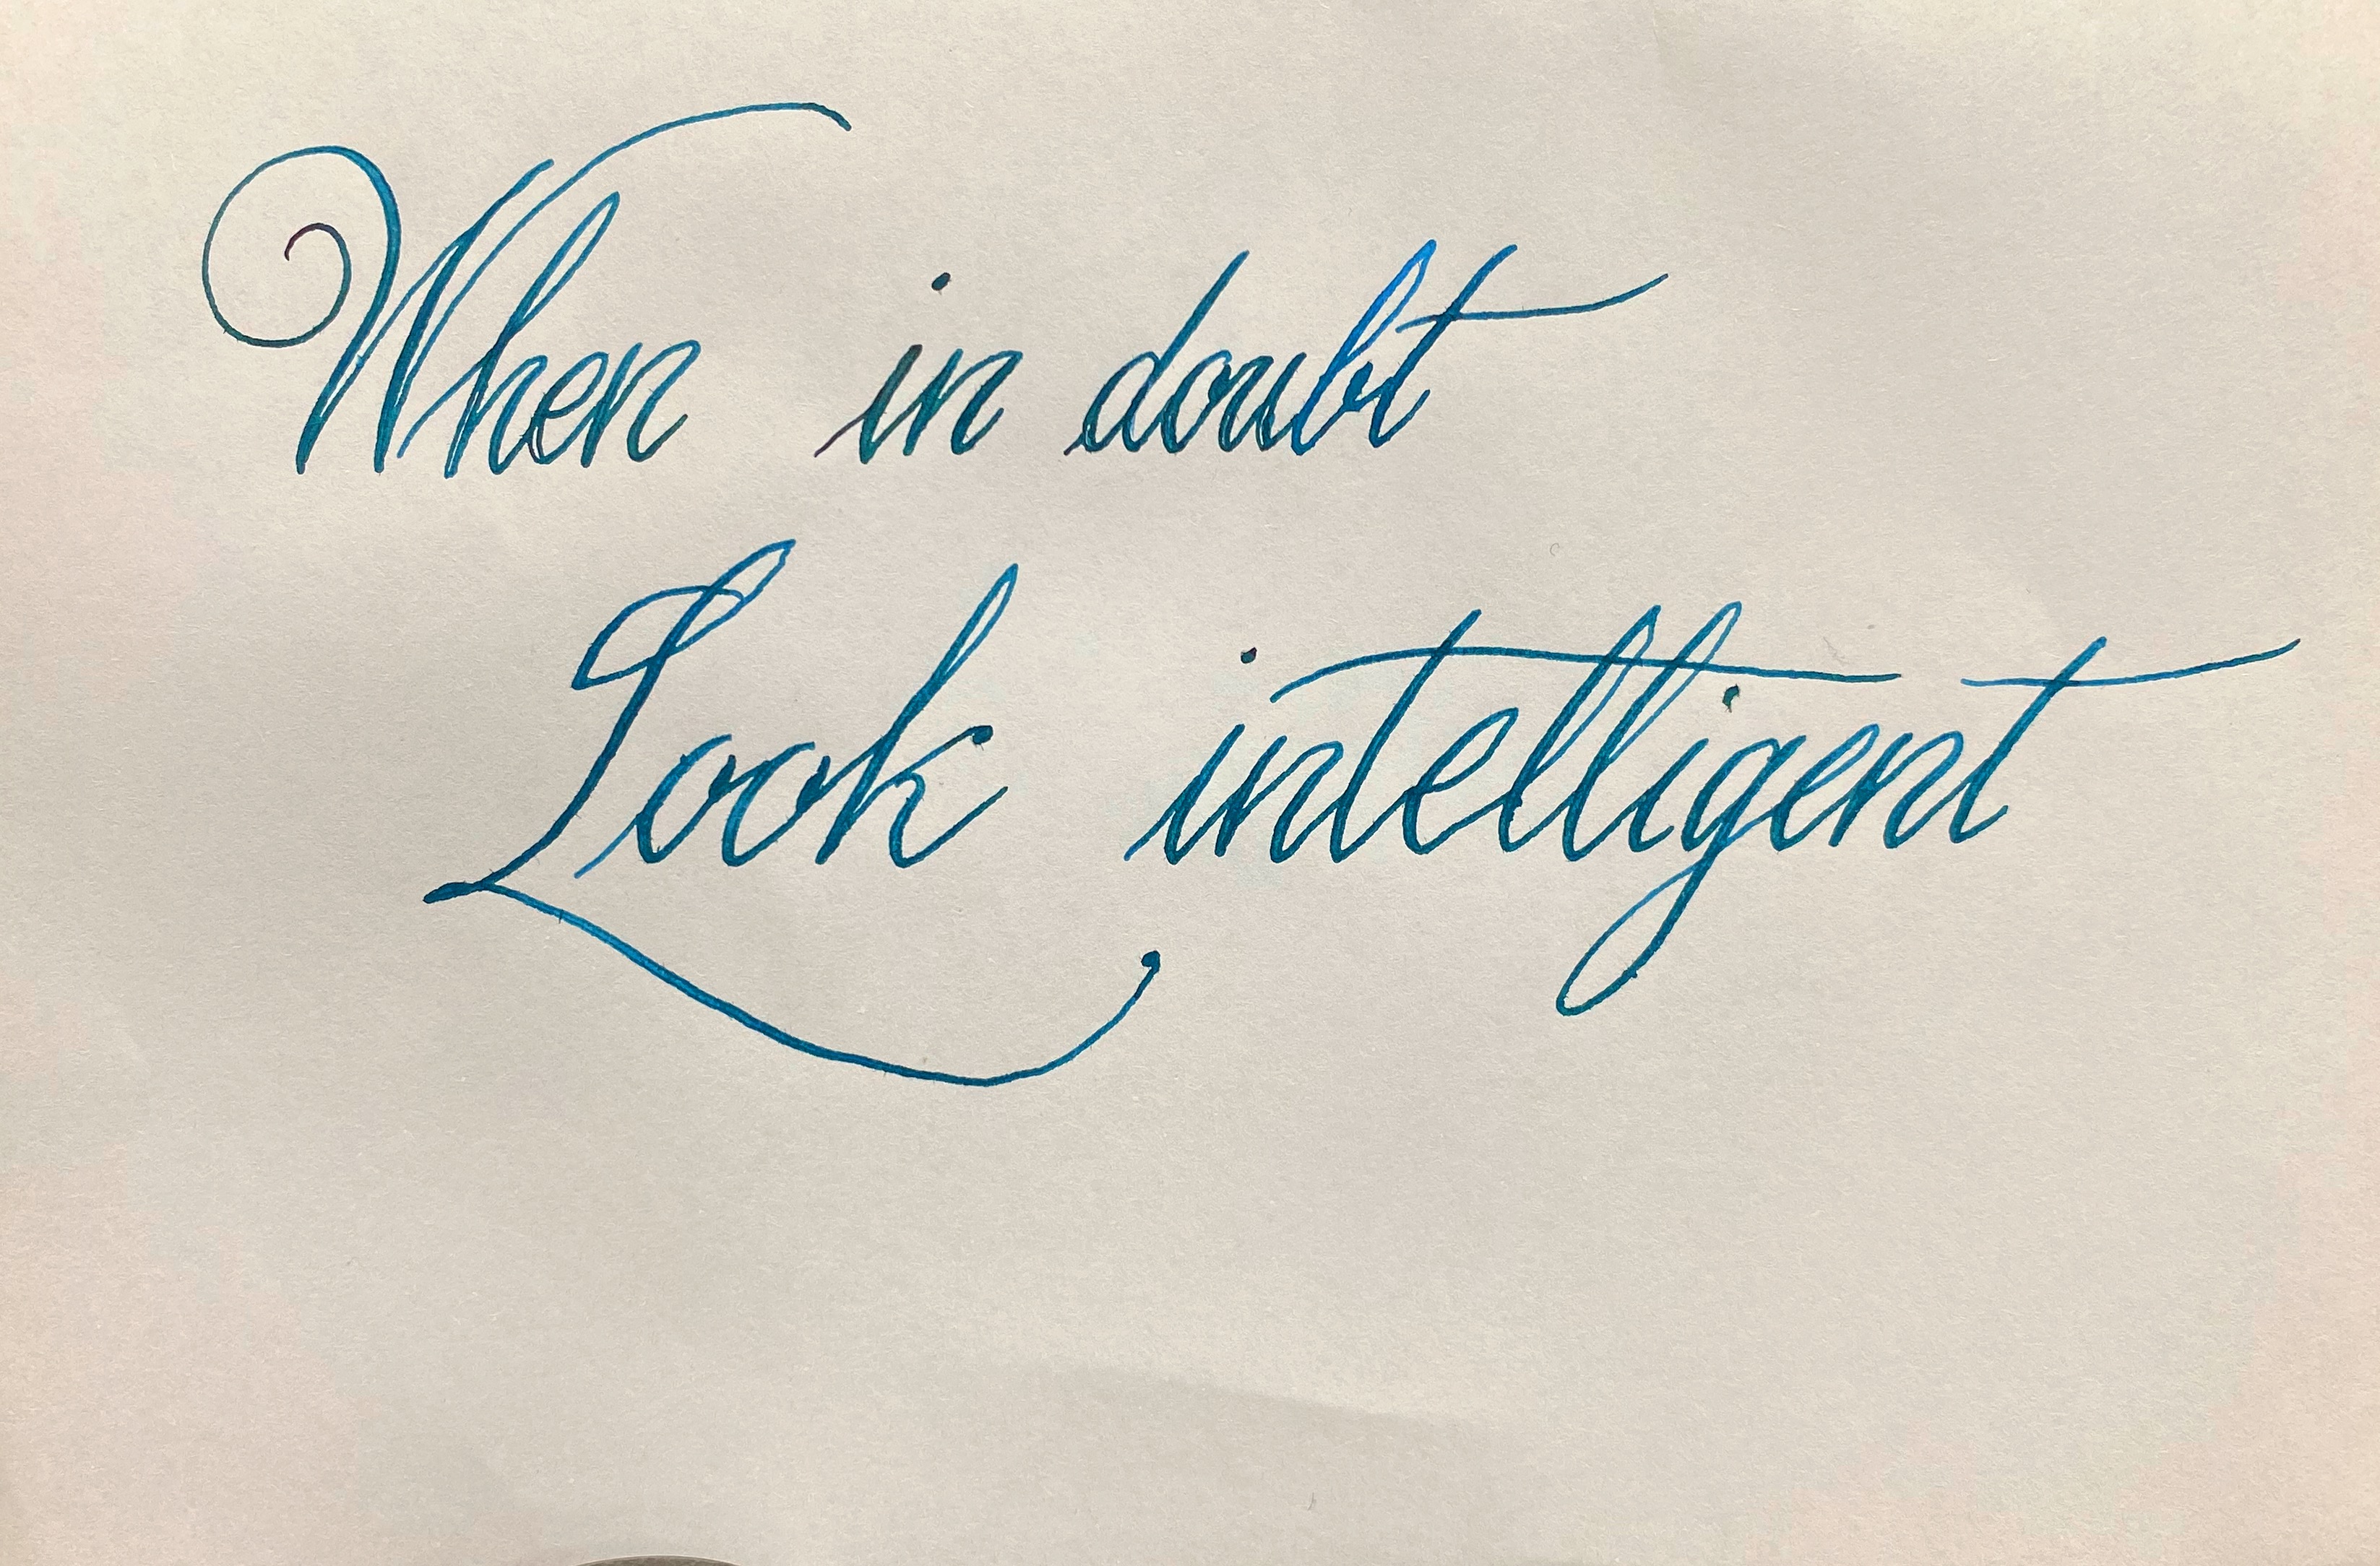 When in doubt
Look intelligent